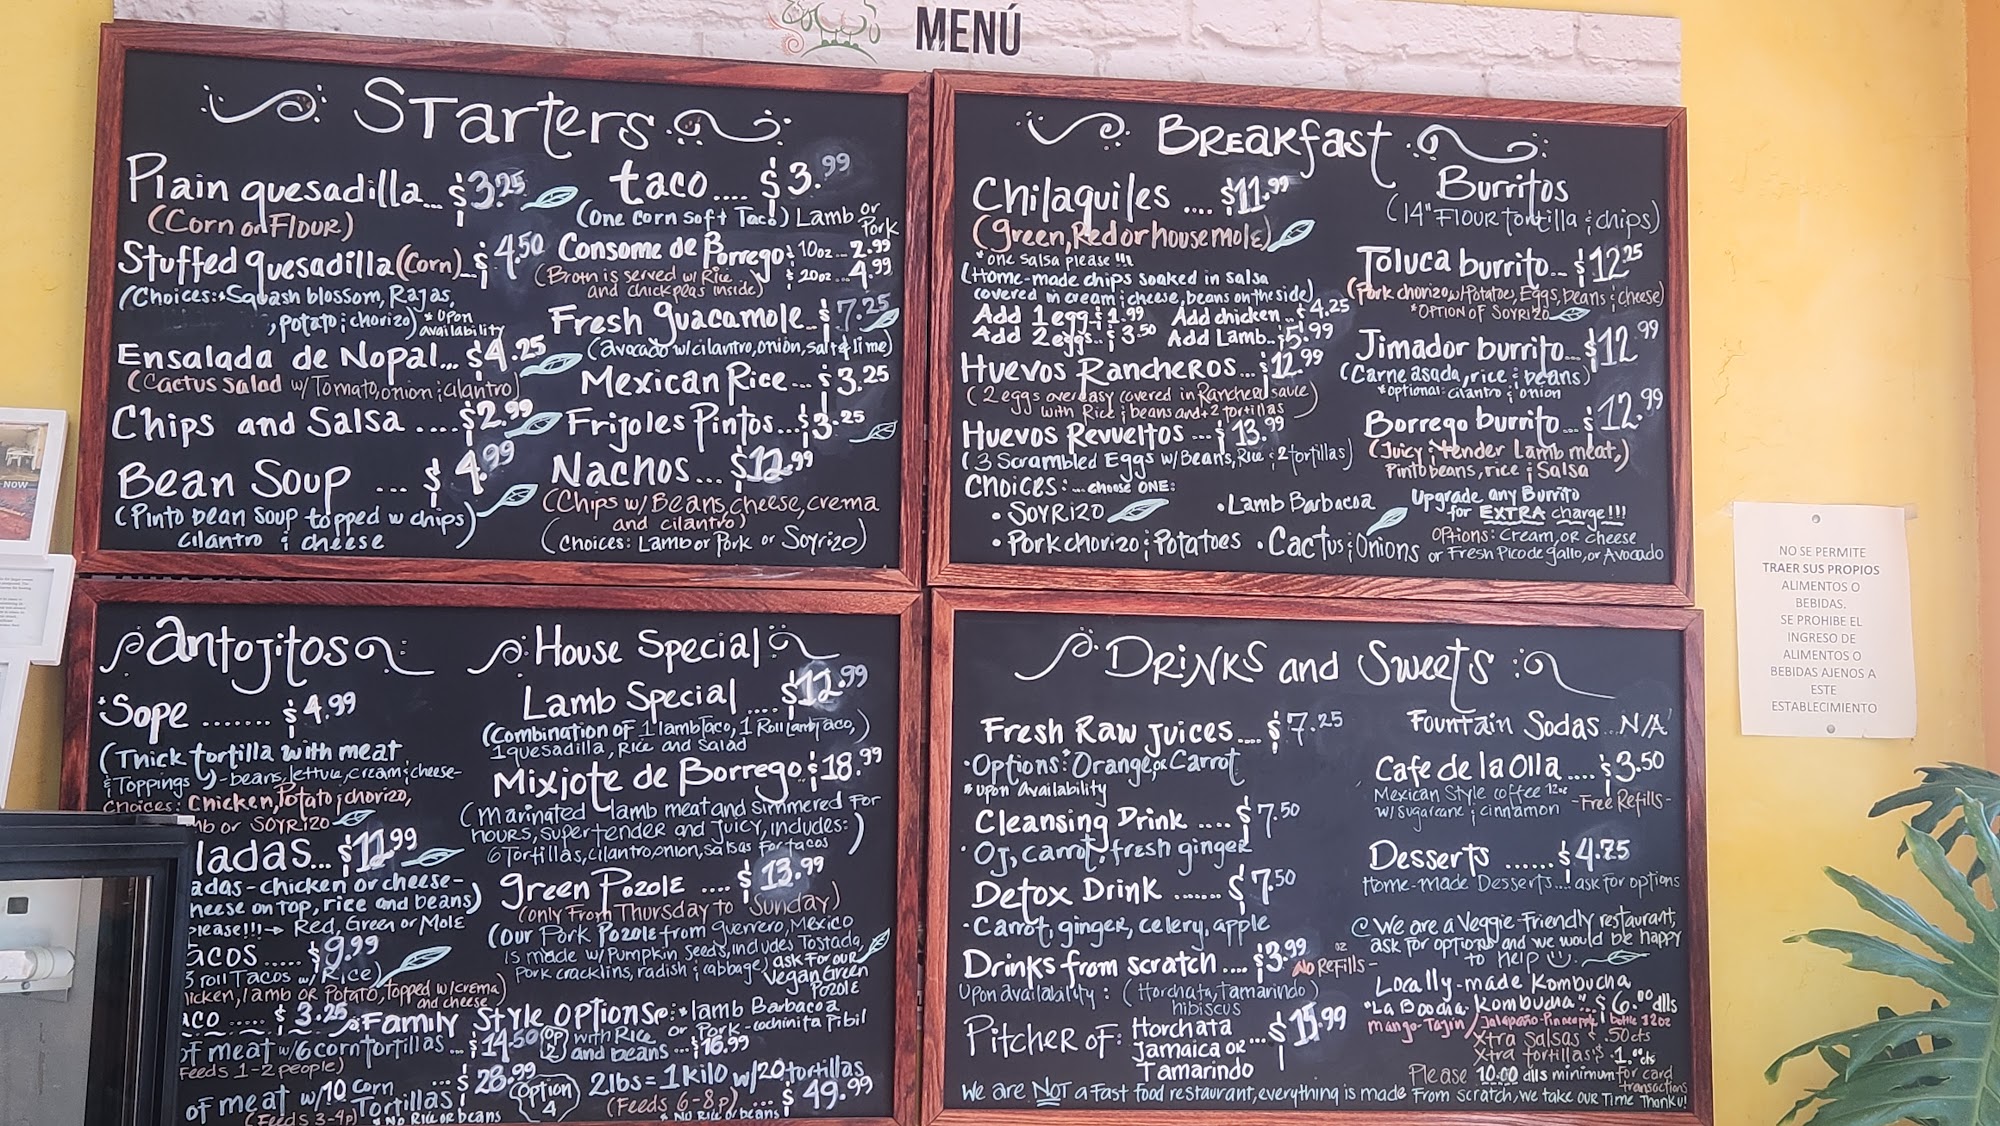 MENÚ
Starters
Plain quesadilla... $3.25
(Corn or Flour)
Stuffed quesadilla (Corn)... $4.50
(Choices: Squash blossom, Rajas,
potato & chorizo) *Upon
availability
Ensalada de Nopal... $4.25
(Cactus salad w/Tomato, onion & cilantro)
Chips and Salsa ....$2.99
Bean Soup ... $4.99
(Pinto bean soup topped w chips)
cilantro & cheese
taco.... $3.99
(One corn soft Taco) Lamb or
Pork
Consome de Borrego $ 10oz.. 2.99
$ 20oz.. 4.99
(Broth is served w/ Rice
and chickpeas inside)
Fresh guacamole.. $7.25
(avocado w/cilantro, onion, salt & lime)
Mexican Rice... $3.25
Frijoles Pintos...$3.25
Nachos... $12.99
(Chips w/ Beans, cheese, crema
and cilantro)
(Choices: Lamb or Pork or Soyrizo)
Breakfast
Chilaquiles .... $11.99
(Green, Red or house mole)
*one salsa please !!!
(Home-made chips soaked in salsa
covered in cream & cheese, beans on the side)
Add 1 egg.. $1.99 Add chicken.. $4.25
Add 2 eggs.. $3.50 Add Lamb.. $5.99
Huevos Rancheros... $12.99
(2 eggs over easy covered in Ranchera sauce
with Rice & beans and + 2 tortillas)
Huevos Revueltos ... $13.99
(3 Scrambled Eggs w/Beans, Rice & 2 tortillas)
Choices: ...choose ONE:
• SOYRIZO
• Lamb Barbacoa
• Pork chorizo & Potatoes
• Cactus & Onions
Burritos
(14" Flour tortilla & chips)
Toluca burrito... $12.25
(Pork chorizo w/Potatoes, Eggs, beans & cheese)
*OPTION OF SOYRIZO
Jimador burrito... $12.99
(Carne asada, rice & beans)
*optional: cilantro & onion
Borrego burrito... $12.99
(Juicy & tender Lamb meat,)
Pinto beans, rice & Salsa
Upgrade any Burrito
for EXTRA charge!!!
Options: Cream, or cheese
or Fresh Pico de gallo, or Avocado
NO SE PERMITE
TRAER SUS PROPIOS
ALIMENTOS O
BEBIDAS.
SE PROHIBE EL
INGRESO DE
ALIMENTOS O
BEBIDAS AJENOS A
ESTE
ESTABLECIMIENTO
NOW
Antojitos
*Sope ....... $4.99
(Thick tortilla with meat
& Toppings) - beans, lettuce, cream & cheese-
Choices: Chicken, Potato & chorizo,
mb or SOYRIZO
ladas... $11.99
adas - chicken or cheese-
heese on top, rice and beans)
please!!!→ Red, Green or Mole
acos ..... $9.99
3 roll Tacos w/ Rice)
hicken, lamb or Potato, topped w/crema
and cheese)
aco ..... $3.25
House Special
Lamb Special .... $12.99
(Combination of 1 lamb Taco, 1 Roll lamb Taco,)
1 quesadilla, Rice and Salad
Mixiote de Borrego.. $18.99
(Marinated lamb meat and simmered for
hours, super tender and juicy, includes:
6 Tortillas, cilantro, onion, salsas for tacos)
Green Pozole .... $13.99
(only From Thursday to Sunday)
(Our Pork Pozole from Guerrero, Mexico
is made w/Pumpkin Seeds, includes Tostada,
pork cracklins, radish & cabbage) ask for our
Vegan Green
Pozole
Family Style Options: *lamb Barbacoa
or Pork-cochinita Pibil
of meat w/6 corn tortillas ... $14.50
OP 2
with Rice
and beans ...$16.99
(Feeds 1-2 people)
of meat w/10 Corn
Tortillas ... $28.99
(Feeds 3-4p) *No Rice or beans
Option
4
2lbs=1kilo w/20 tortillas
(Feeds 6-8p) ... $49.99
*No Rice or beans
Drinks and Sweets
Fresh Raw Juices.... $7.25
•Options: Orange, or Carrot
*Upon Availability
Cleansing Drink .... $7.50
• OJ, carrot, fresh ginger
Detox Drink ....... $7.50
•Carrot, ginger, celery, apple
Drinks from scratch.... $3.99 oz
No Refills-
Upon availability: (Horchata, Tamarindo)
hibiscus
Pitcher of: Horchata
Jamaica or
Tamarindo
... $15.99
Fountain Sodas... N/A
Cafe de la Olla .... $3.50
Mexican Style coffee 12oz
w/ sugarcane & cinnamon -Free Refills-
Desserts ...... $4.75
Home-made Desserts...! ask for options
We are a Veggie-Friendly restaurant,
ask for options and we would be happy
to help
Locally-made Kombucha
"La Boocha-Kombucha".. $6.00 dlls
mango-Tajin / Jalapeño-Pineapple bottle 12oz
Xtra Salsas $ .50cts
Xtra tortillas $ 1.00cts
Please 10.00 dlls minimum for card
transactions
We are NOT a fast food restaurant, everything is made from scratch, we take our Time Thanku!